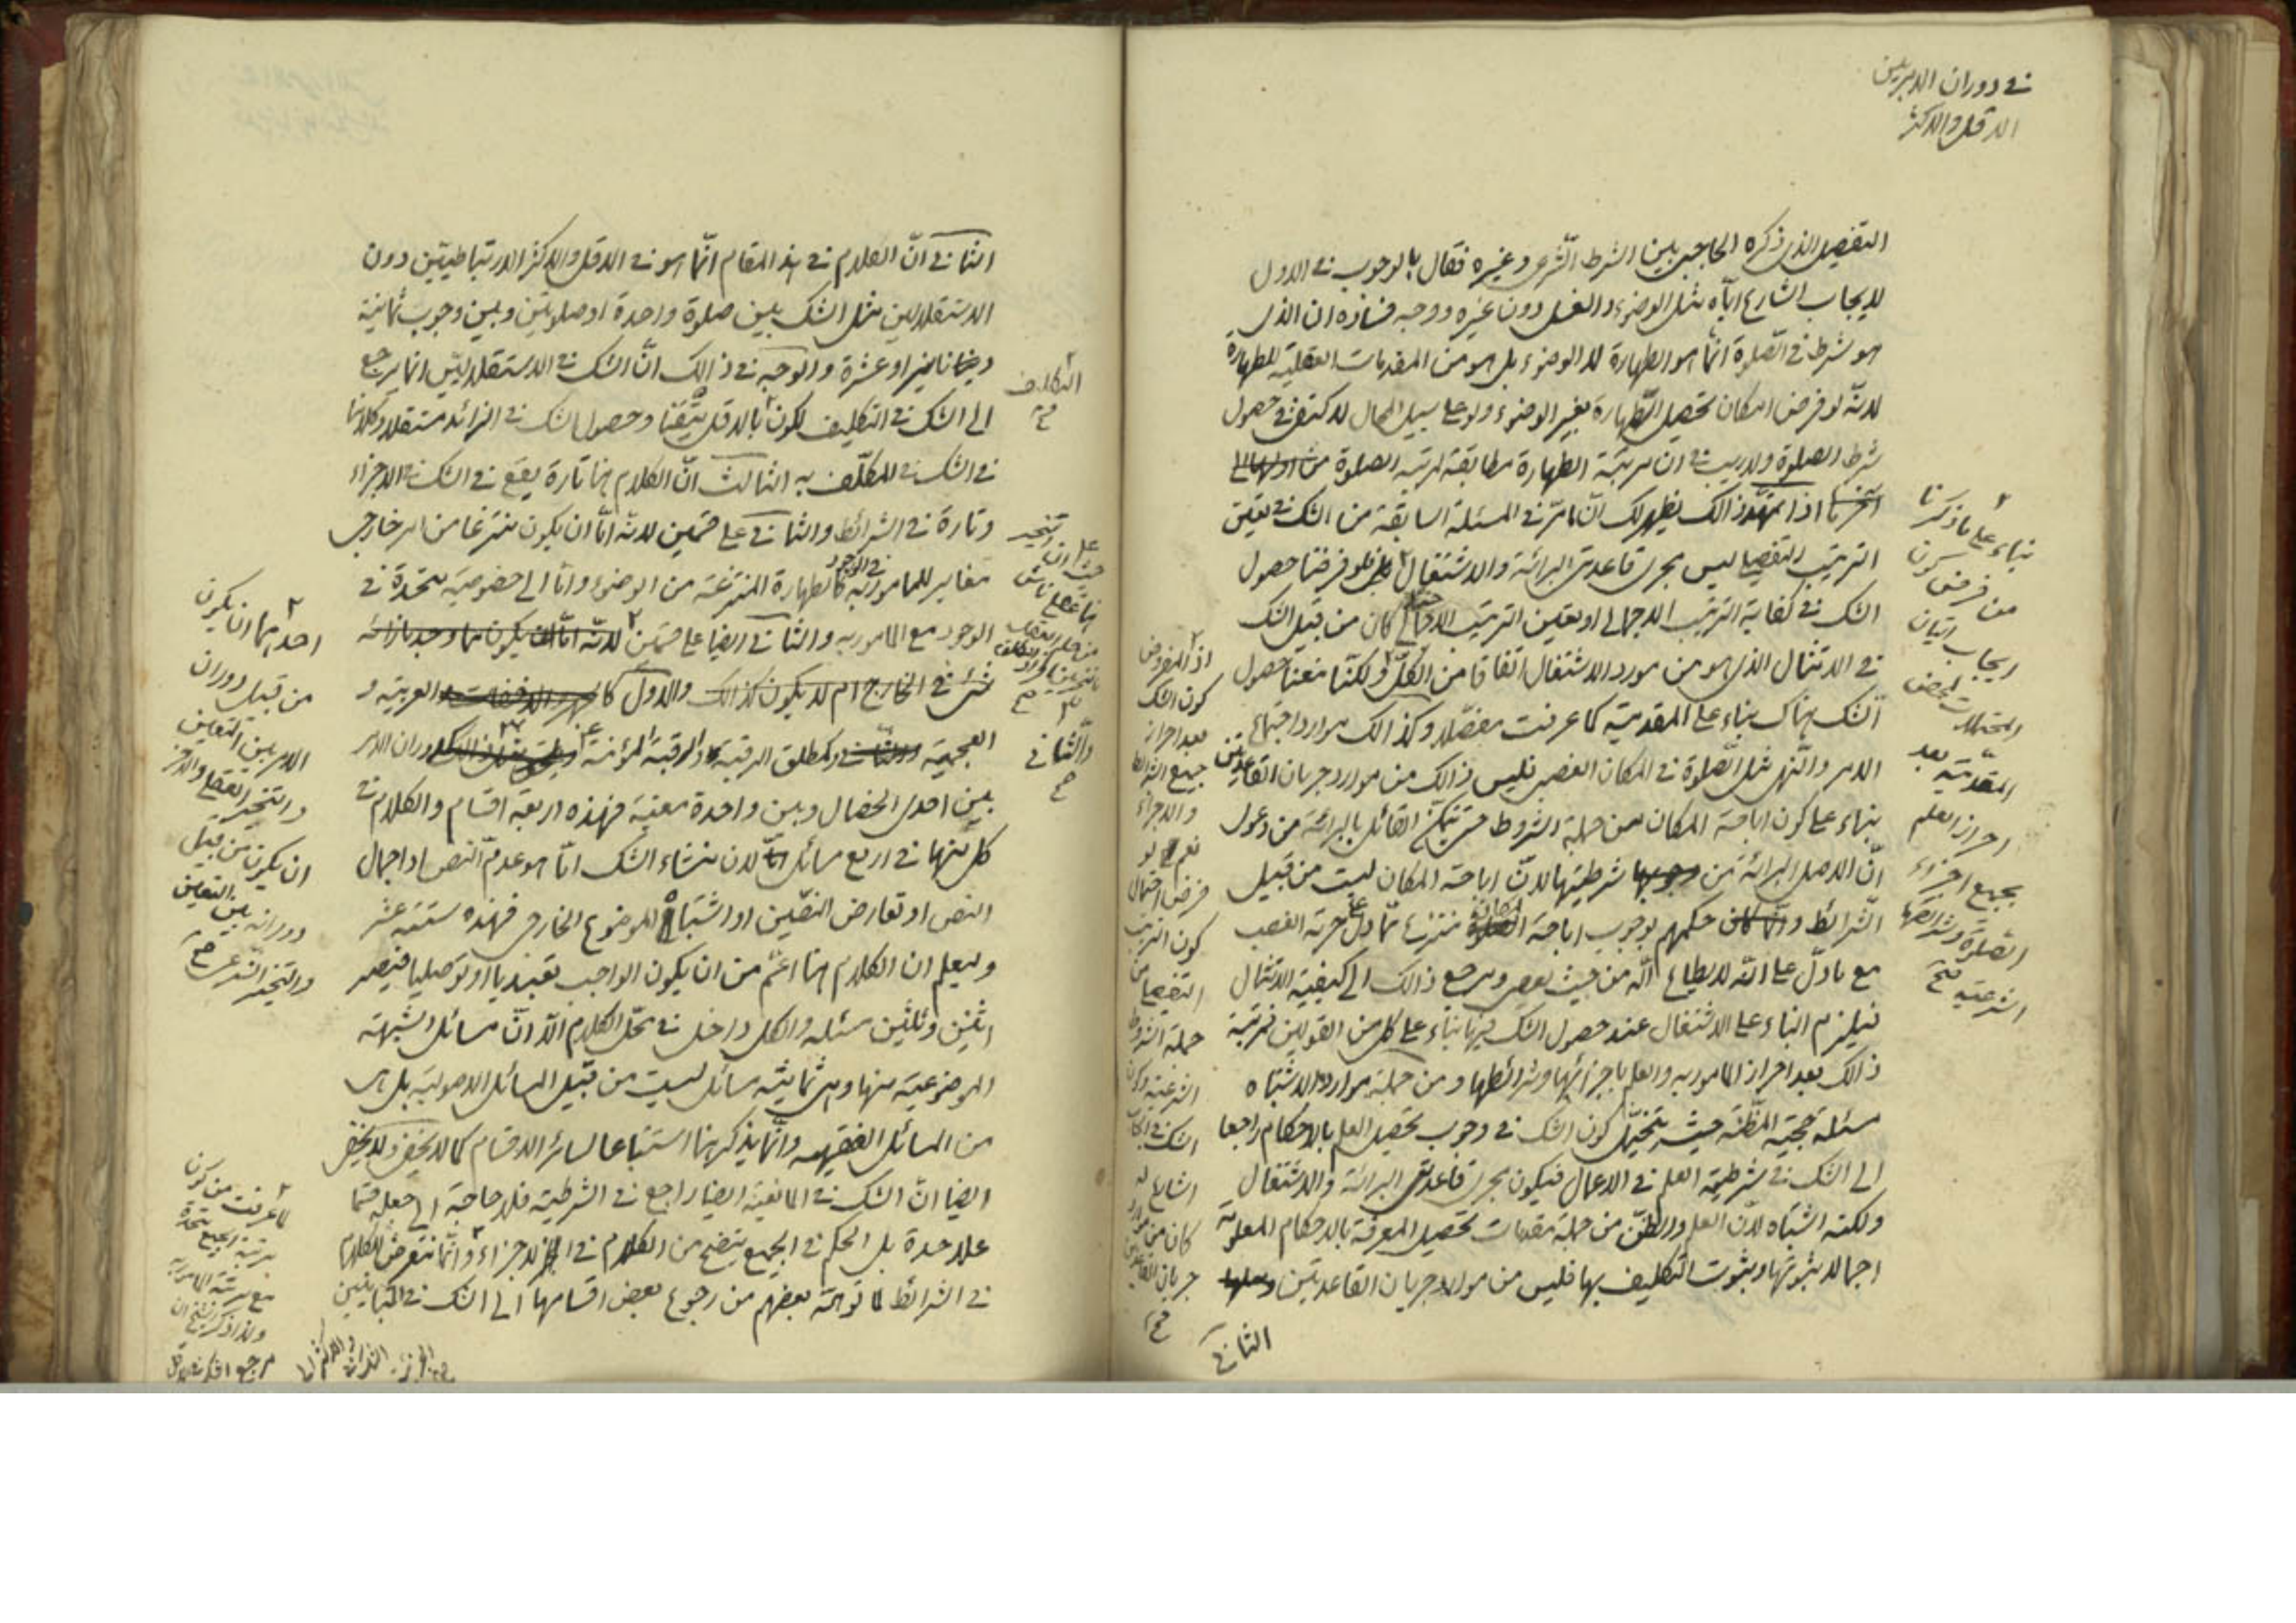 في دوران الامر بين
الاقل والاكثر
التفصيل الذي ذكره الحاجبي بين الشرط الشرعي وغيره فقال بالوجوب في الاول
لايجاب الشارع اياه مثل الوضوء والغسل دون غيره ووجه فساده ان الذي
هو شرط في الصلوة انما هو الطهارة لا الوضوء بل هو من المقدمات العقلية للطهارة
لانه لو فرض امكان تحصيل الطهارة بغير الوضوء ولو على سبيل المحال لاكتفى في حصول
شرط الصلوة ولا ريب في ان مرتبة الطهارة مطابقة لمرتبة الصلوة من اولها الى
آخرها اذا تمهد ذالك يظهر لك ان ما مر في المسئلة السابقة من الشك في تعيين
الترتيب التفصيلي ليس مجرى قاعدتى البرائة والاشتغال فلو فرضنا حصول
الشك في كفاية الترتيب الاجمالي او تعيين الترتيب كان من قبيل الشك
في الامتثال الذي هو من مورد الاشتغال اتفاقا من الكل ولكنا منعنا حصول
الشك هناك بناء على المقدمية كما عرفت مفصلا وكذالك موارد اجتماع
الامر والنهي مثل الصلوة في المكان الغصبي فليس ذالك من موارد جريان القاعدتين
بناء على كون اباحة المكان من جملة الشروط حتى يتمكن القائل بالبرائة من دعوى
ان الاصل البرائة من شرطيتها لان اباحة المكان ليست من قبيل
الشرائط و حكمهم بوجوب اباحة المكان منتزع مما دل على حرمة الغصب
مع ما دل على انه لا يطاع الله من حيث يعصى ومرجع ذالك الى كيفية الامتثال
فيلزم البناء على الاشتغال عند حصول الشك فيها بناء على كل من القولين فمرتبة
ذالك بعد احراز المامور به والعلم باجزائها وشرائطها ومن جملة موارد الاشتباه
مسئلة حجية المظنة حيث يتخيل كون الشك في وجوب تحصيل العلم بالاحكام راجعا
الى الشك في شرطية العلم في الاعمال فيكون مجرى قاعدتى البرائة والاشتغال
ولكنه اشتباه لان العلم والظن من جملة مقدمات تحصيل المعرفة بالاحكام المعلومة
اجمالا ثبوتها وبثبوت التكليف بها فليس من موارد جريان القاعدتين
الثاني
بناء على ما ذكرنا
من فرض كون
ايجاب اتيان
المحتملات لمحض
المقدمية بعد
احراز العلم
بجميع اجزاء
الصلوة وشرائطها
الشرعية صح
اذ المفروض
كون الشك
بعد احراز
جميع الشرائط
والاجزاء
نعم لو
فرض احتمال
كون الترتيب
التفصيلي من
جملة الشروط
الشرعية
الشارع له
كان من موارد
جريان القاعدتين
صح
الثاني ان الكلام في هذا المقام انما هو في الاقل والاكثر الارتباطيين دون
الاستقلاليين مثل الشك بين صلوة واحدة او صلوتين وبين وجوب ثمانية
دنانير او عشرة والوجه في ذالك ان الشك في الاستقلاليين انما يرجع
الى الشك في التكليف لكون بالاقل متيقنا وحصول الشك في الزائد مستقلا وكلامنا
في الشك في المكلف به الثالث ان الكلام هنا تارة يقع في الشك في الاجزاء
وتارة في الشرائط والثاني على قسمين لانه اما ان يكون منتزعا من امر خارجي
مغاير للمامور به في الوجود كالطهارة المنتزعة من الوضوء واما الى خصوصية متحدة في
الوجود مع المامور به والثاني ايضا على قسمين لانه اما ان يكون مما وجد بازائه
شئ في الخارج ام لا يكون كذالك والاول العربية و
العجمية كمطلق الرقبة والرقبة المؤمنة دوران الامر
بين احدى الخصال وبين واحدة معينة فهذه اربعة اقسام والكلام في
كل منها في اربع مسائل لان منشاء الشك اما هو عدم النص او اجمال
النص او تعارض النصين او اشتباه الموضوع الخارجي فهذه ستة عشر
وليعلم ان الكلام هنا اعم من ان يكون الواجب تعبديا او توصليا فيصير
اثنين وثلثين مسئلة والكل داخل في محل الكلام الا ان مسائل الشبهة
الموضوعية منها وهي ثمانية مسائل ليست من قبيل المسائل الاصولية بل هي
من المسائل الفقهية وانما يذكر هنا استتباعا لسائر الاقسام كما لا يخفى ولا يخفى
ايضا ان الشك في المانعية ايضا راجع في الشرطية فلا حاجة الى جعله قسما
علاحدة بل الحكم في الجميع يتضح من الكلام في الاجزاء وانما نتعرض للكلام
في الشرائط لما توهمه بعضهم من رجوع بعض اقسامها الى الشك في المتباينين
التكليف
صح
والثاني
صح
احدهما ان يكون
من قبيل دوران
الامر بين التعيين
والتخيير العقلي والاخر
ان يكون من قبيل
دورانه بين التعيين
والتخيير الشرعي صح
لما عرفت من كون
مرتبة الجميع متحدة
مع مرتبة المامور به